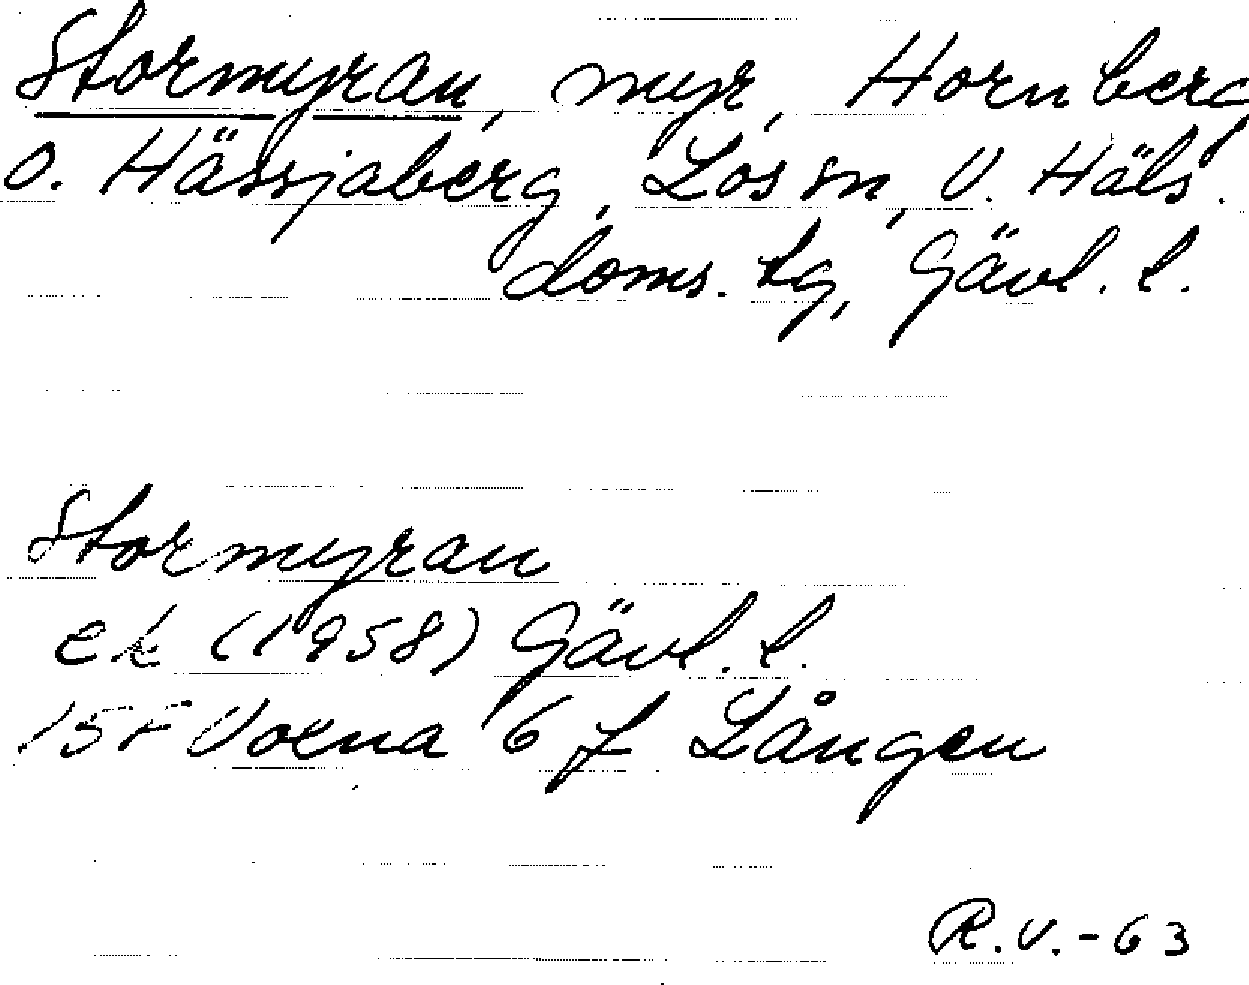 Stormyran, myr, Hornberg
o. Hässjaberg, Los sn, V. Häls.
doms. tg, Gävl. l.
Stormyran
ek (1958) Gävl. l.
15F Voxna 6 f Lången
R.V.-63